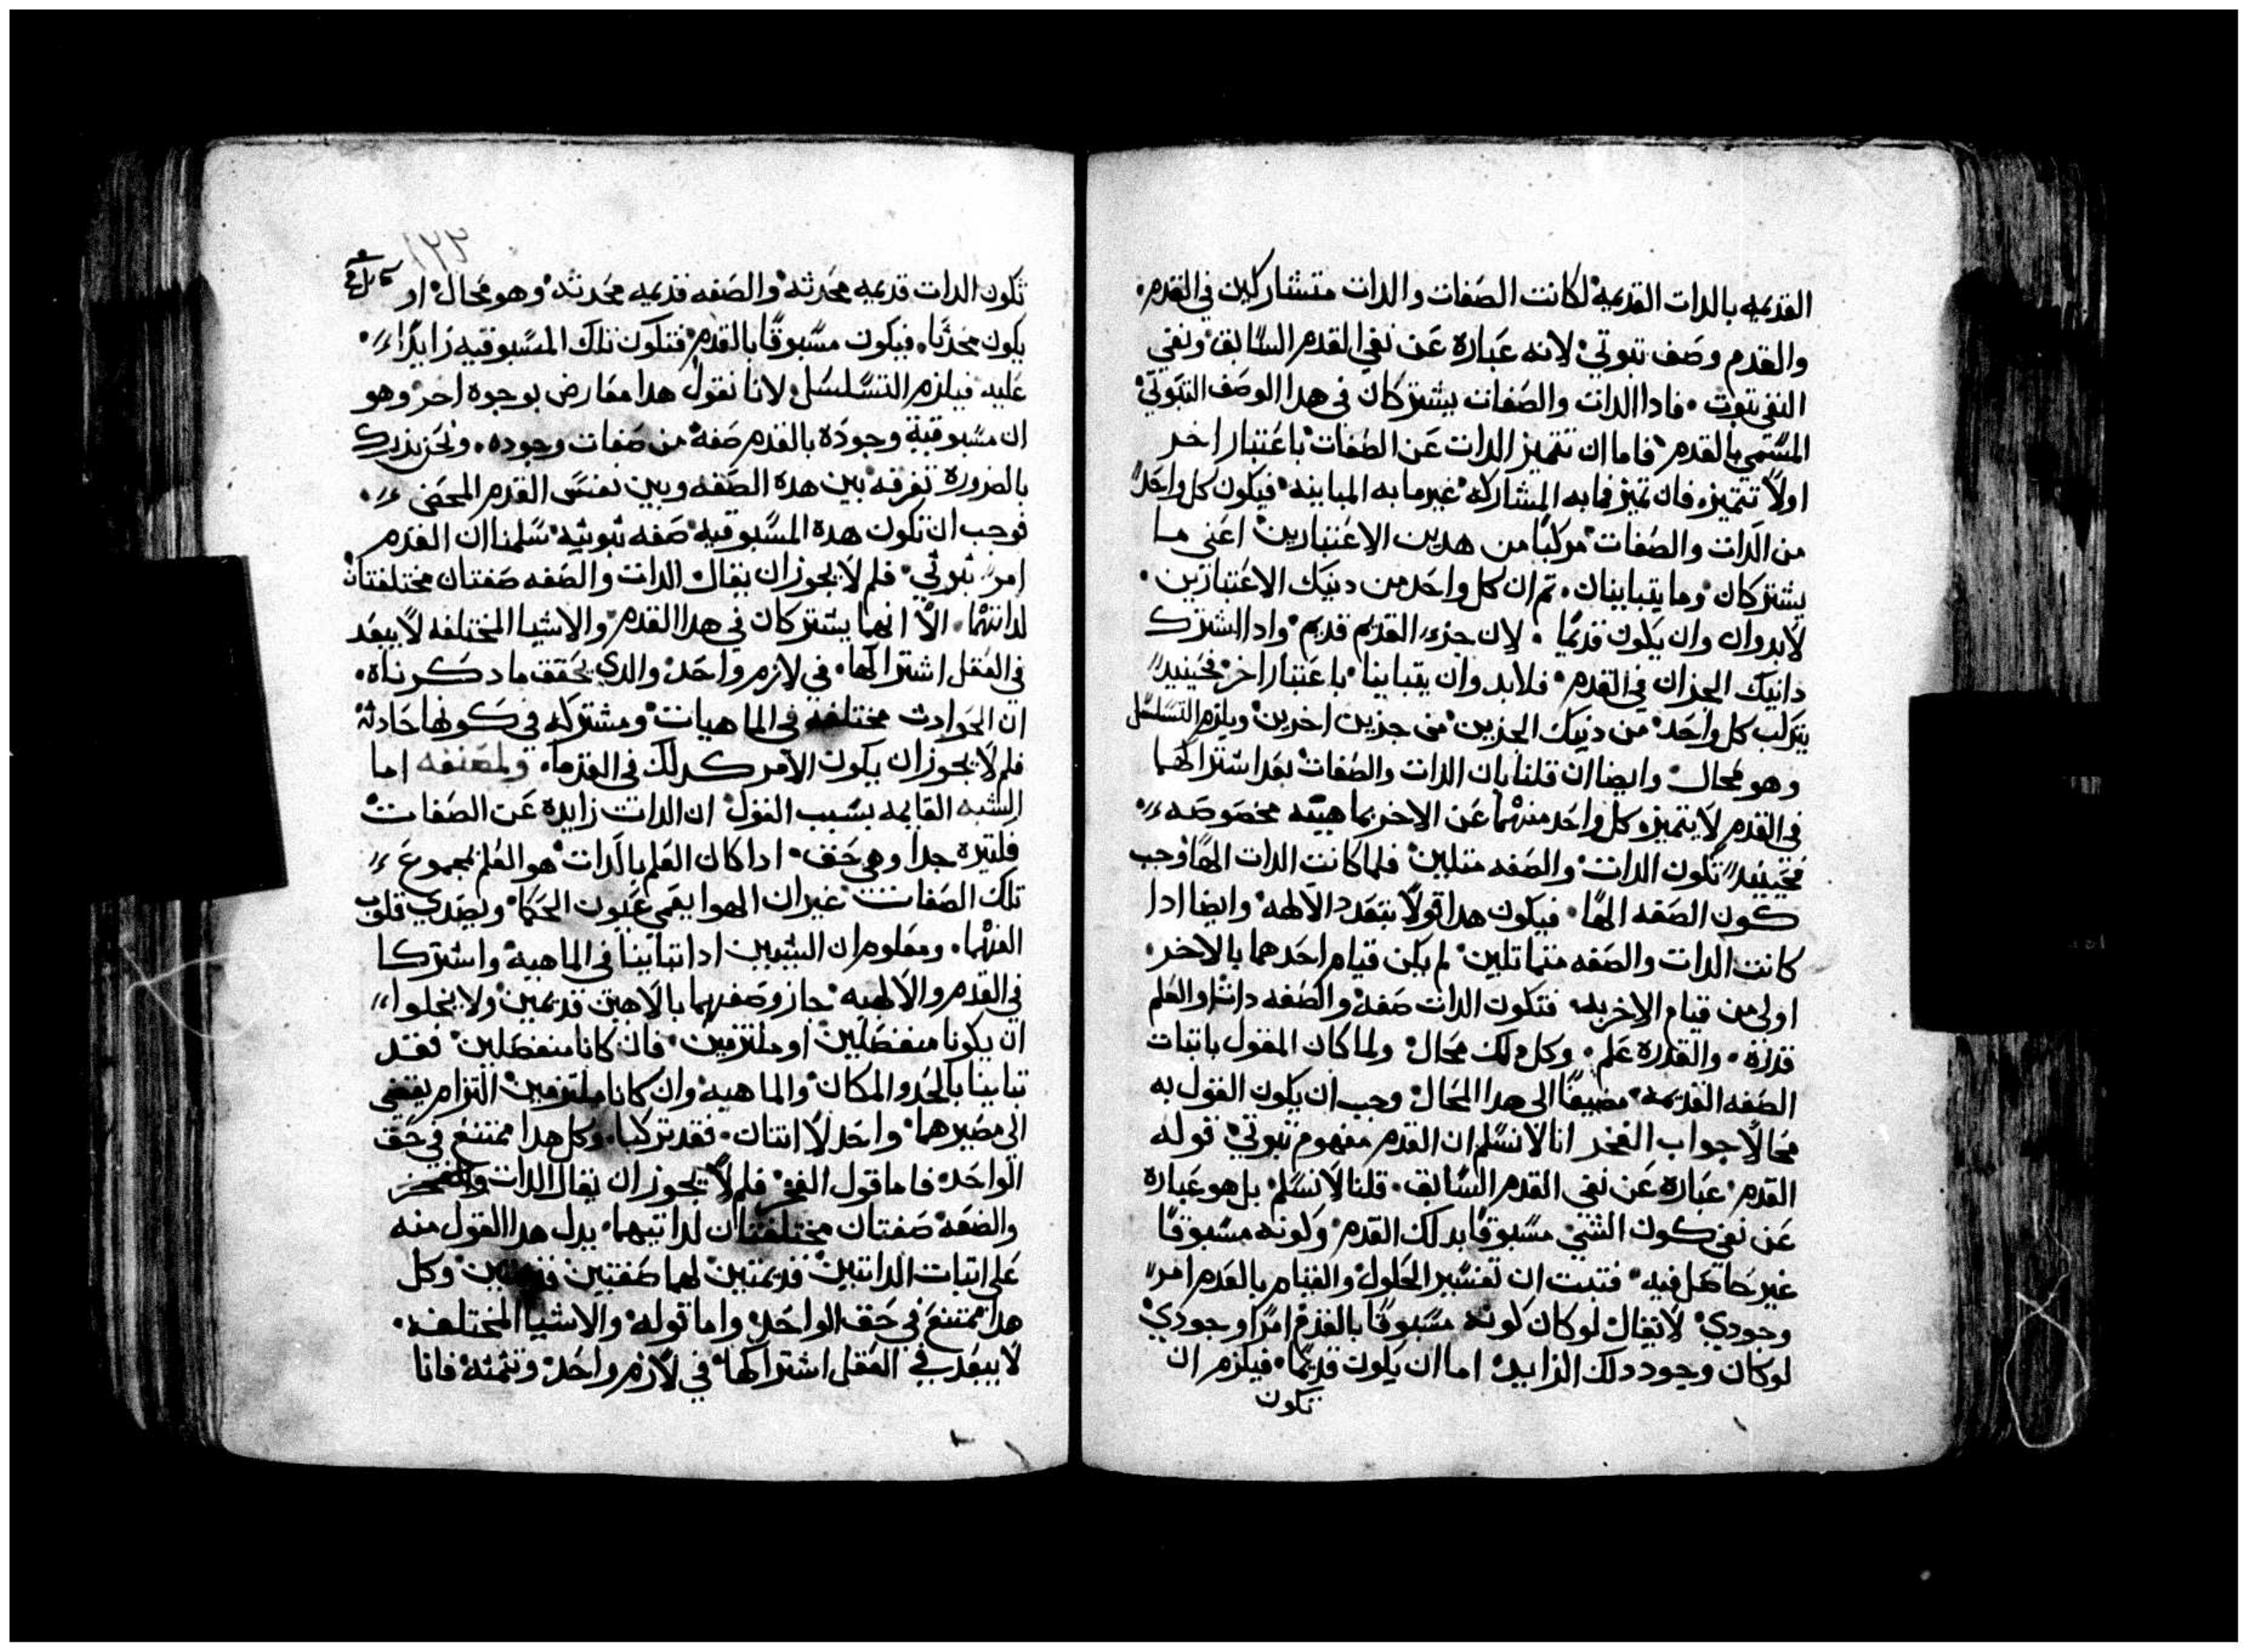 القديمه بالدات القديمة لكانت الصفات والدات متشاركين في القدم
والقدم وصف تبوتي لانه عبارة عن نفي القدم السابق ونفي
النفي تبوت فادا الدات والصفات يشتركان في هدا الوصف التبوتي
المسمي بالقدم فاما ان تتميز الدات عن الصفات باعتبار اخر
اولا تتميز فان تميز فما به المشاركه غير ما به المباينه فيكون كل واحد
من الدات والصفات مركبا من هدين الاعتبارين اعني ما
يشتركان وما يتباينان تم ان كل واحد من دنيك الاعتبارين
لابد وان وان يكون قديما لان جزء القديم قديم وادا اشترك
دانيك الجزان في القدم فلا بد وان يتباينا باعتبار اخر فحينيد
يتركب كل واحد من دنيك الجزين من جزين اخرين ويلزم التسلسل
وهو محال وايضا ان قلنا بان الدات والصفات بعد اشتراكهما
في القدم لا يتميز كل واحد منهما عن الاخر بماهيته مخصوصه
فحينيد تكون الدات والصفه متلين فلما كانت الدات الها وجب
كون الصفه الها فيكون هدا قولا بتعدد الالهه وايضا ادا
كانت الدات والصفه متماتلين لم يكن قيام احدهما بالاخر
اولي من قيام الاخر به فتكون الدات صفة والصفه داتا والعلم
قدرة والقدرة علم وكل دلك محال ولما كان المقول باتبات
الصفه القديمه مضيفا الى هدا المحال وجب ان يكون القول به
محالا جواب الفخر انا لا نسلم ان القدم مفهوم تبوتي قوله
القدم عبارة عن نفي القدم السابق قلنا لا نسلم بل هو عبارة
عن نفي كون الشي مسبوقا بدلك القدم وكونه مسبوقا
غير حاصل فيه فتبت ان تفسير الحلول والقيام بالعدم امر
وجودي لا يقال لو كان كونه مسبوقا بالقدم امرا وجودي
لو كان وجود دلك الزايد اما ان يكون قديما فيلزم ان
تكون
١٢٢
تكون الدات قديمه محدثه والصفه قديمه محدثه وهو محال او
يكون محدثا فيكون مسبوقا بالقدم فتكون تلك المسبوقيه زايدا
عليه فيلزم التسلسل لانا نقول هدا معارض بوجوه اخر وهو
ان مسبوقية وجوده بالقدم صفة من صفات وجوده ونحن ندرك
بالضرورة تفرقه بين هده الصفه وبين نفس القدم المحض
فوجب ان تكون هده المسبوقيه صفه ثبوتيه سلمنا ان القدم
امر ثبوتي فلم لا يجوز ان يقال الدات والصفه صفتان مختلفتان
لداتتهما الا انهما يشتركان في هدا القدم والاشيا المختلفه لا يبعد
في العقل اشتراكها في لازم واحد والدي يحقق ما دكرناه
ان الحوادث مختلفه في الماهيات ومشتركه في كونها حادثة
فلم لا يجوز ان يكون الامر كدلك في القدما ولمصنفه اما
الشبه القايمه بسبب القول ان الدات زايدة عن الصفات
فلتيرة جدا وهي حق ادا كان العلم بالدات هو العلم بمجموع
تلك الصفات غير ان الهوا يعمي عيون الحكما ويصدي قلوب
الفهما ومعلوم ان الشيين ادا تباينا في الماهية واشتركا
في القدم والالهيه جاز وصفهما بالاهين قديمين ولا يخلوا
ان يكونا منفصلين او ملتزمين فان كانا منفصلين فقد
تباينا بالحد والمكان والماهيه وان كانا ملتزمين التزام يفضي
الى مصيرهما واحد لا اتنان فقد تركبا وكل هدا ممتنع في حق
الواحد فاما قول الفخر فلم لا يجوز ان يقال الدات
والصفة صفتان مختلفتان لداتيهما يدل هدا القول منه
على اتبات الداتين قديمتين لهما صفتين وكل
هدا ممتنع في حق الواحد واما قوله والاشيا المختلفه
لا يبعد في العقل اشتراكها في لازم واحد وتتمته فانا